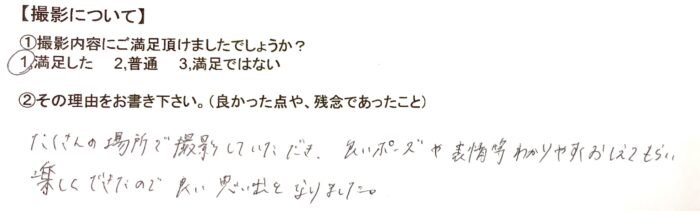 【撮影について】
①撮影内容にご満足頂けましたでしょうか？
1,満足した　2,普通　3,満足ではない
②その理由をお書き下さい。（良かった点や、残念であったこと）
たくさんの場所で撮影していただき、良いポーズや表情等わかりやすくおしえてもらい
楽しくできたので良い思い出となりました。